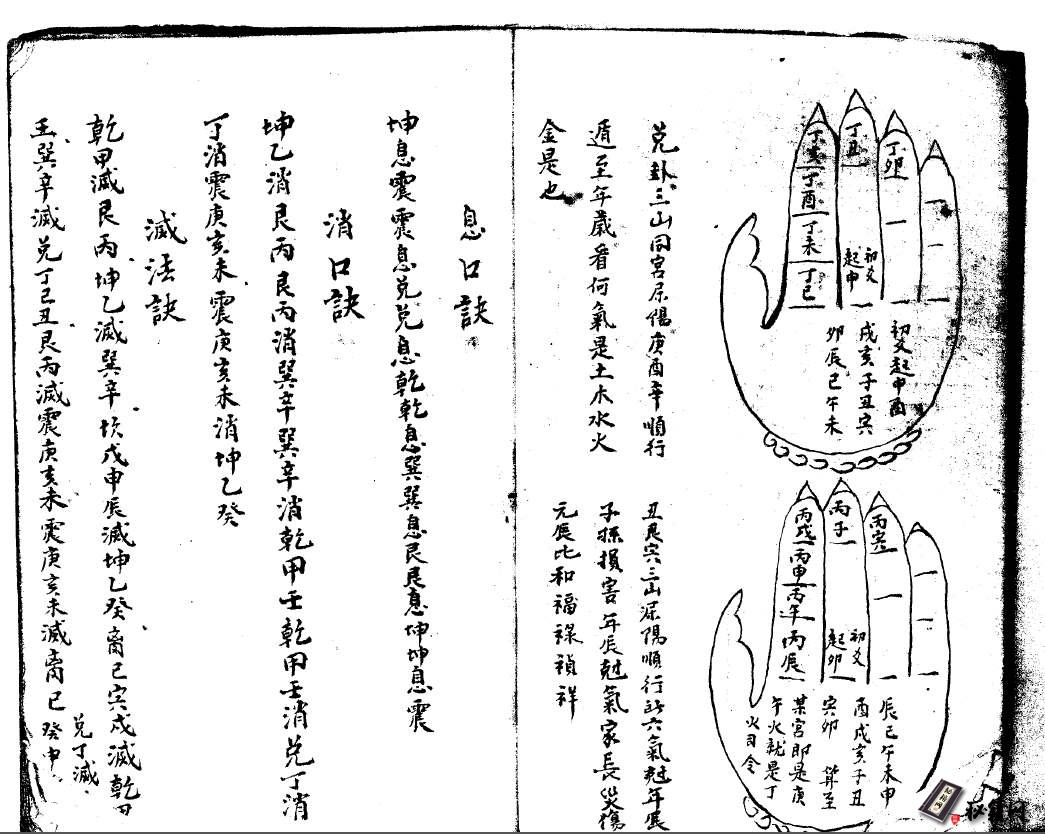 丁亥
丁酉
丁未
丁巳
丁丑
丁卯
初爻
起申
初爻起申酉
戌亥子丑寅
卯辰巳午未
兌卦三山同宮屬陽庚酉辛順行
遁至年歲看何氣是土木水火
金是也
丙戌
丙申
丙午
丙辰
丙子
丙寅
初爻
起卯
辰巳午未申
酉戌亥子丑
寅卯 算至
某宮即是庚
午火就是丁
火司令
丑艮寅三山屬陽順行於六氣尅年辰
子孫損害年辰尅氣家長災傷
元辰比和福祿禎祥
息口訣
坤息震震息兌兌息乾乾息巽巽息艮艮息坤坤息震
消口訣
坤乙消艮丙艮丙消巽辛巽辛消乾甲壬乾甲壬消兌丁消
丁消震庚亥未震庚亥未消坤乙癸
滅法訣
乾甲滅艮丙坤乙滅巽辛坎戊申辰滅坤乙癸离巳寅戌滅乾甲
壬巽辛滅兌丁巳丑艮丙滅震庚亥未震庚亥未滅离巳
兌丁滅
癸申